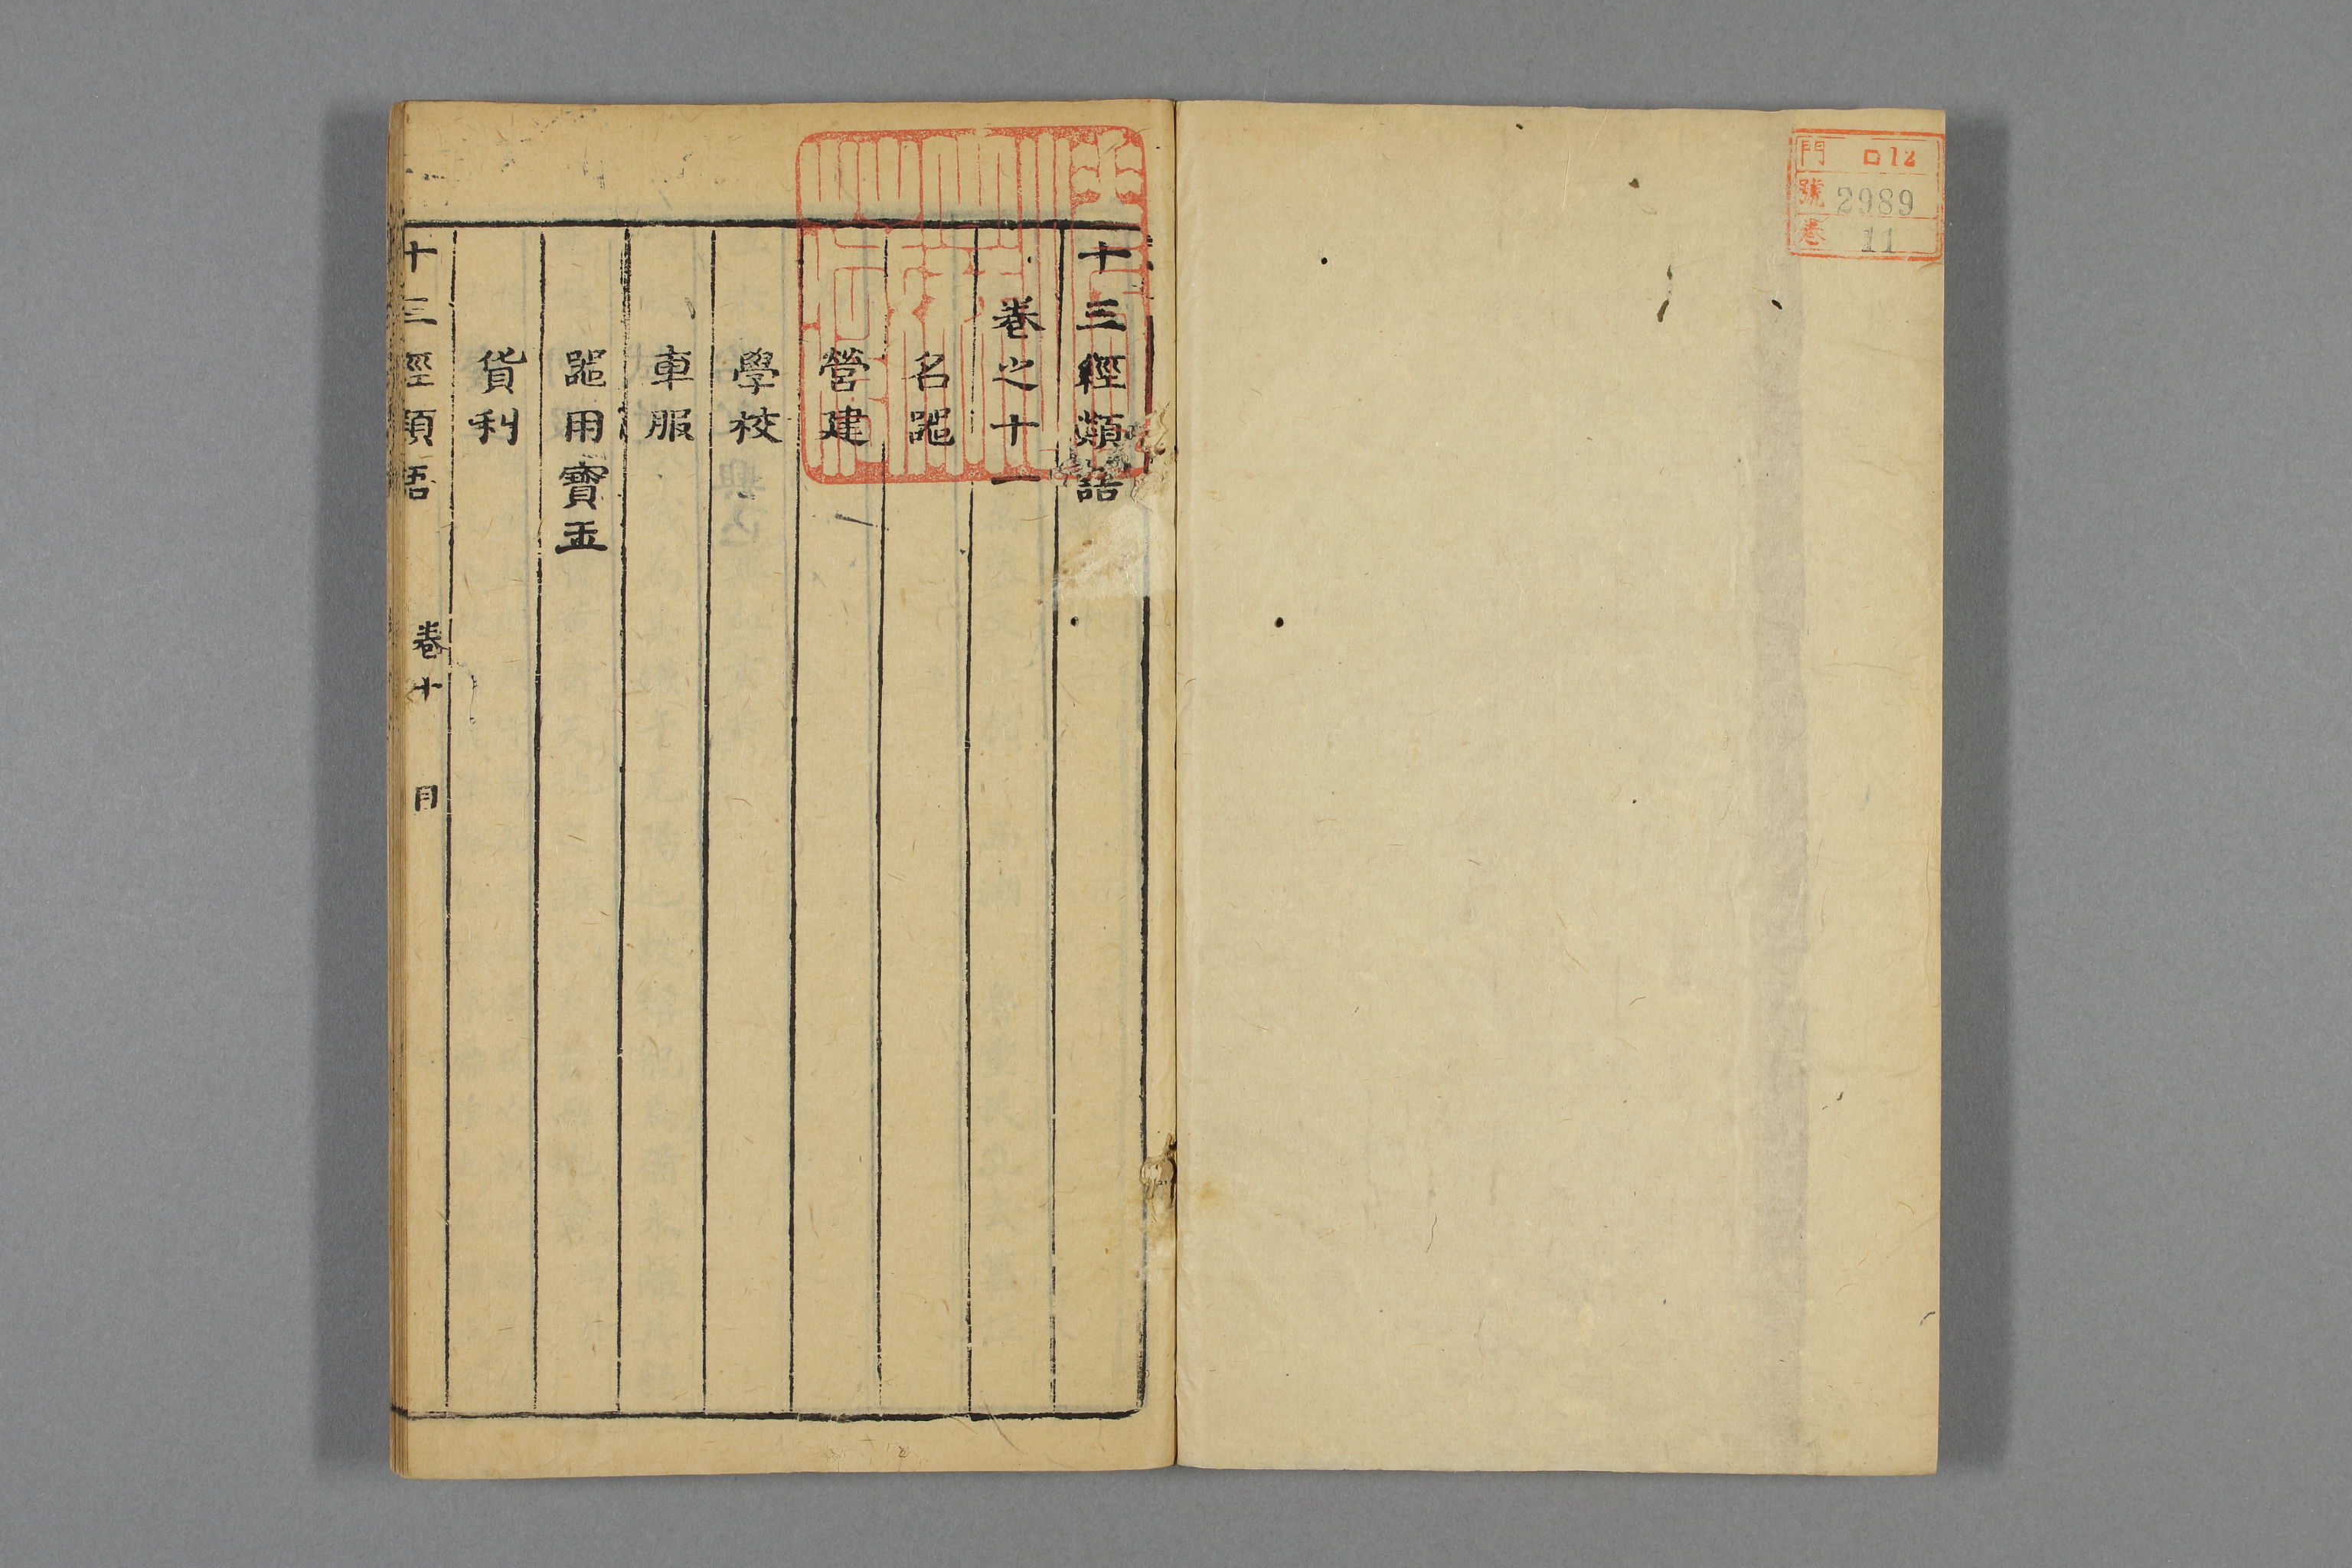 門 ロ12
號 2989
巻 11
十三經類語
卷之十一
名器
營建
學校
車服
器用寶玉
貨利
十三經類語 卷十 目